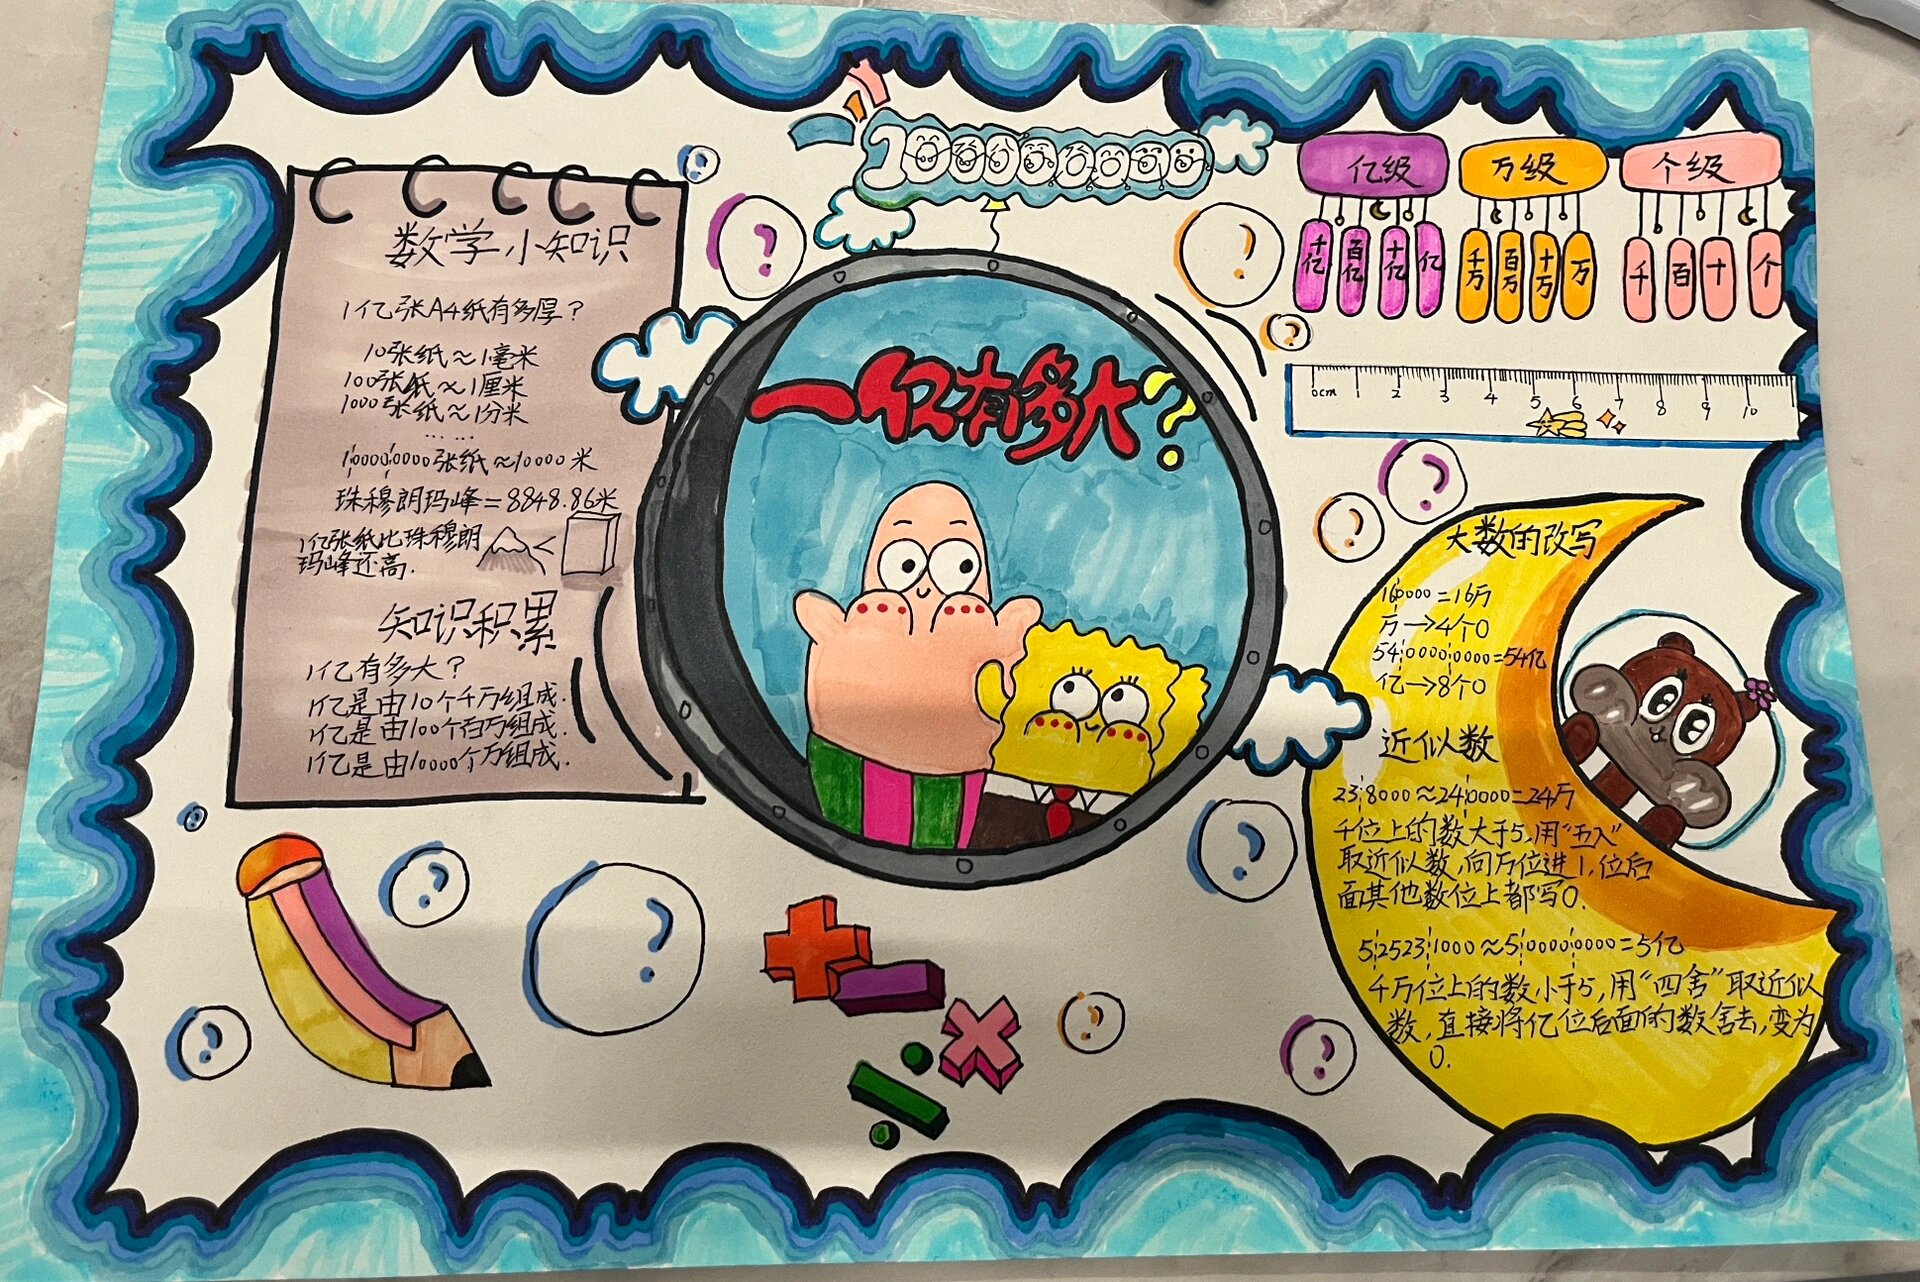 数学小知识
1亿张A4纸有多厚？
10张纸≈1毫米
100张纸≈1厘米
1000张纸≈1分米
……
100000000张纸≈10000米
珠穆朗玛峰=8848.86米
1亿张纸比珠穆朗
玛峰还高.
<
知识积累
1亿有多大？
1亿是由10个千万组成.
1亿是由100个百万组成.
1亿是由10000个万组成.
100000000
一亿有多大?
亿级 万级 个级
千亿 百亿 十亿 亿 千万 百万 十万 万 千 百 十 个
0cm 1 2 3 4 5 6 7 8 9 10
大数的改写
160000=16万
万→4个0
5400000000=54亿
亿→8个0
近似数
238000≈240000=24万
千位上的数大于5,用“五入”
取近似数,向万位进1,位后
面其他数位上都写0.
525231000≈500000000=5亿
千万位上的数小于5,用“四舍”取近似
数,直接将亿位后面的数舍去,变为
0.